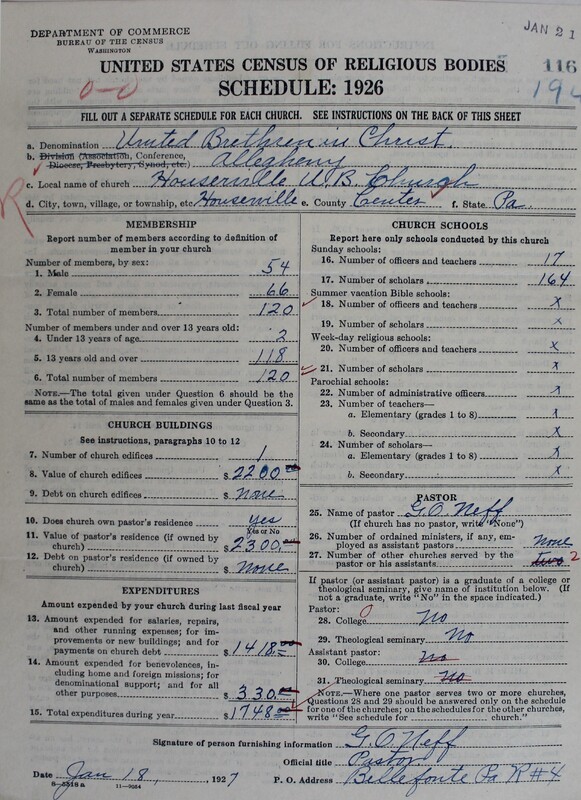 JAN 21
DEPARTMENT OF COMMERCE
BUREAU OF THE CENSUS
WASHINGTON
UNITED STATES CENSUS OF RELIGIOUS BODIES
116
SCHEDULE: 1926
0-0
194
FILL OUT A SEPARATE SCHEDULE FOR EACH CHURCH. SEE INSTRUCTIONS ON THE BACK OF THIS SHEET
a. Denomination United Brethren in Christ
b. Division (Association, Conference, Diocese, Presbytery, Synod, etc.) Allegheny
c. Local name of church Houserville U.B. Church
d. City, town, village, or township, etc. Houserville e. County Center f. State Pa.
R
MEMBERSHIP
Report number of members according to definition of member in your church
Number of members, by sex:
1. Male 54
2. Female 66
3. Total number of members 120
Number of members under and over 13 years old:
4. Under 13 years of age 2
5. 13 years old and over 118
6. Total number of members 120
NOTE.—The total given under Question 6 should be the same as the total of males and females given under Question 3.
CHURCH BUILDINGS
See instructions, paragraphs 10 to 12
7. Number of church edifices 1
8. Value of church edifices $ 2200.00
9. Debt on church edifices $ none
10. Does church own pastor's residence yes
(Yes or No)
11. Value of pastor's residence (if owned by church) $ 2300.00
12. Debt on pastor's residence (if owned by church) $ none
EXPENDITURES
Amount expended by your church during last fiscal year
13. Amount expended for salaries, repairs, and other running expenses; for improvements or new buildings; and for payments on church debt $ 1418.00
14. Amount expended for benevolences, including home and foreign missions; for denominational support; and for all other purposes $ 330.00
15. Total expenditures during year $ 1748.00
CHURCH SCHOOLS
Report here only schools conducted by this church
Sunday schools:
16. Number of officers and teachers 17
17. Number of scholars 164
Summer vacation Bible schools:
18. Number of officers and teachers x
19. Number of scholars x
Week-day religious schools:
20. Number of officers and teachers x
21. Number of scholars x
Parochial schools:
22. Number of administrative officers x
23. Number of teachers—
a. Elementary (grades 1 to 8) x
b. Secondary x
24. Number of scholars—
a. Elementary (grades 1 to 8) x
b. Secondary x
PASTOR
25. Name of pastor G.O. Neff
(If church has no pastor, write "None")
26. Number of ordained ministers, if any, employed as assistant pastors none
27. Number of other churches served by the pastor or his assistants two 2
If pastor (or assistant pastor) is a graduate of a college or theological seminary, give name of institution below. (If not a graduate, write "No" in the space indicated.)
Pastor:
28. College 0 No
29. Theological seminary No
Assistant pastor:
30. College No
31. Theological seminary No
NOTE.—Where one pastor serves two or more churches, Questions 28 and 29 should be answered only on the schedule for one of the churches; on the schedules for the other churches, write "See schedule for ______ church."
Signature of person furnishing information G.O. Neff
Official title Pastor
Date Jan 18, 1927 P. O. Address Bellefonte Pa R#4
8-5518a 11-9084